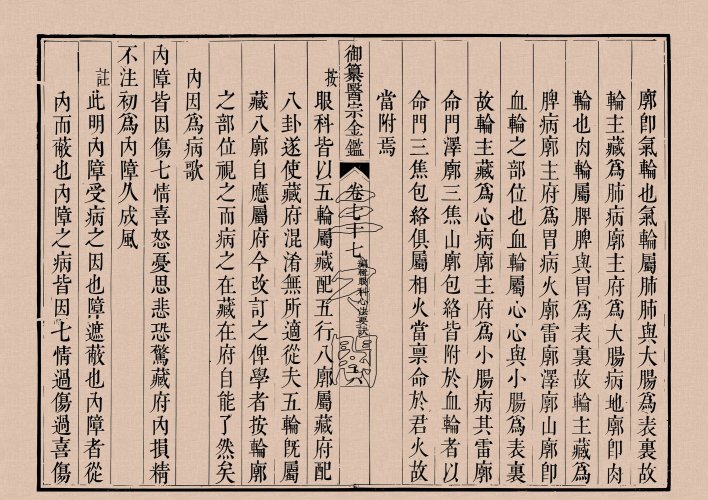 廓卽氣輪也氣輪屬肺肺與大腸爲表裏故
輪主藏爲肺病廓主府爲大腸病地廓卽肉
輪也肉輪屬脾脾與胃爲表裏故輪主藏爲
脾病廓主府爲胃病火廓雷廓澤廓山廓卽
血輪之部位也血輪屬心心與小腸爲表裏
故輪主藏爲心病廓主府爲小腸病其雷廓
命門澤廓三焦山廓包絡皆附於血輪者以
命門三焦包絡俱屬相火當禀命於君火故
當附焉
御纂醫宗金鑑
卷七十七
編輯眼科心法要訣
按眼科皆以五輪屬藏配五行八廓屬藏府配
八卦遂使藏府混淆無所適從夫五輪旣屬
藏八廓自應屬府今改訂之俾學者按輪廓
之部位視之而病之在藏在府自能了然矣
內因爲病歌
內障皆因傷七情喜怒憂思悲恐驚藏府內損精
不注初爲內障久成風
註此明內障受病之因也障遮蔽也內障者從
內而蔽也內障之病皆因七情過傷過喜傷